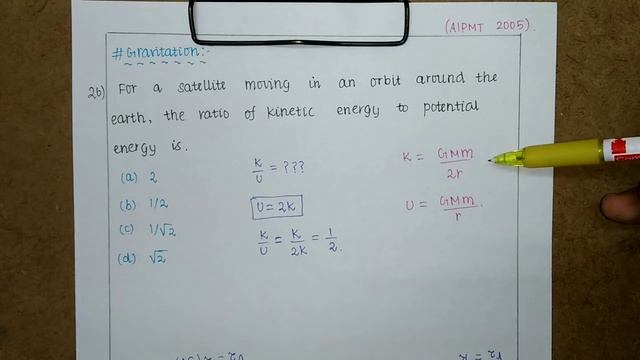 (AIPMT 2005).
# Gravitation:-
26) For a satellite moving in an orbit around the
earth, the ratio of kinetic energy to potential
energy is.
(a) 2
(b) 1/2
(c) 1/√2
(d) √2
K/U = ???
U = 2K
K/U = K/2K = 1/2.
K = GMm/2r
U = GMm/r.